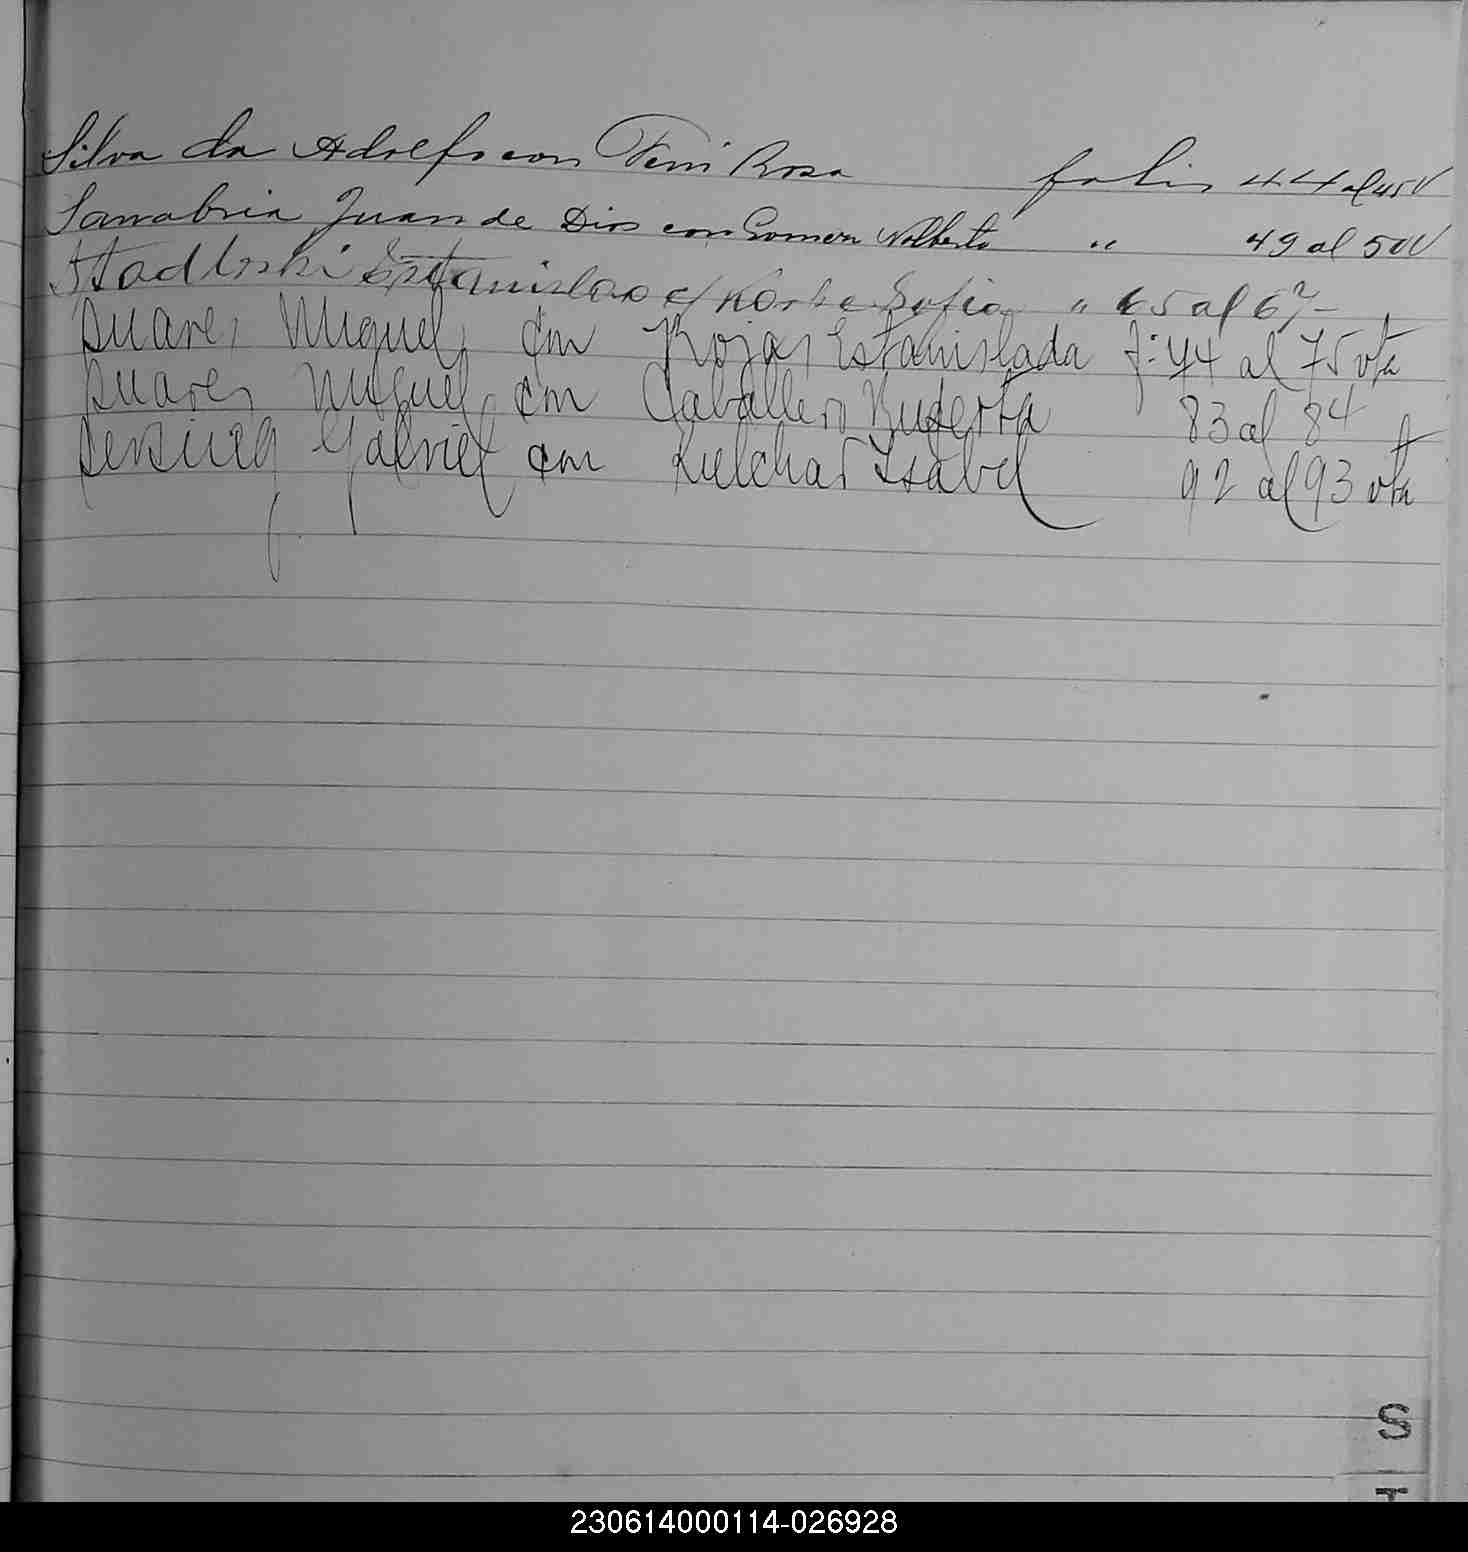 Silva da Adolfo con Feni Rosa folio 44 al 45V
Sanabria Juan de Dios con Gomen Nolberta " 49 al 50V
Stadloski Estanislao c/ Korbe Sofia " 65 al 67-
Suarez Miguel con Rojas Estanislada f: 74 al 75 vta
Suarez Miguel con Caballero Ruperta 83 al 84
Gabriel con Isabel 92 al 93 vta
S
T
230614000114-026928